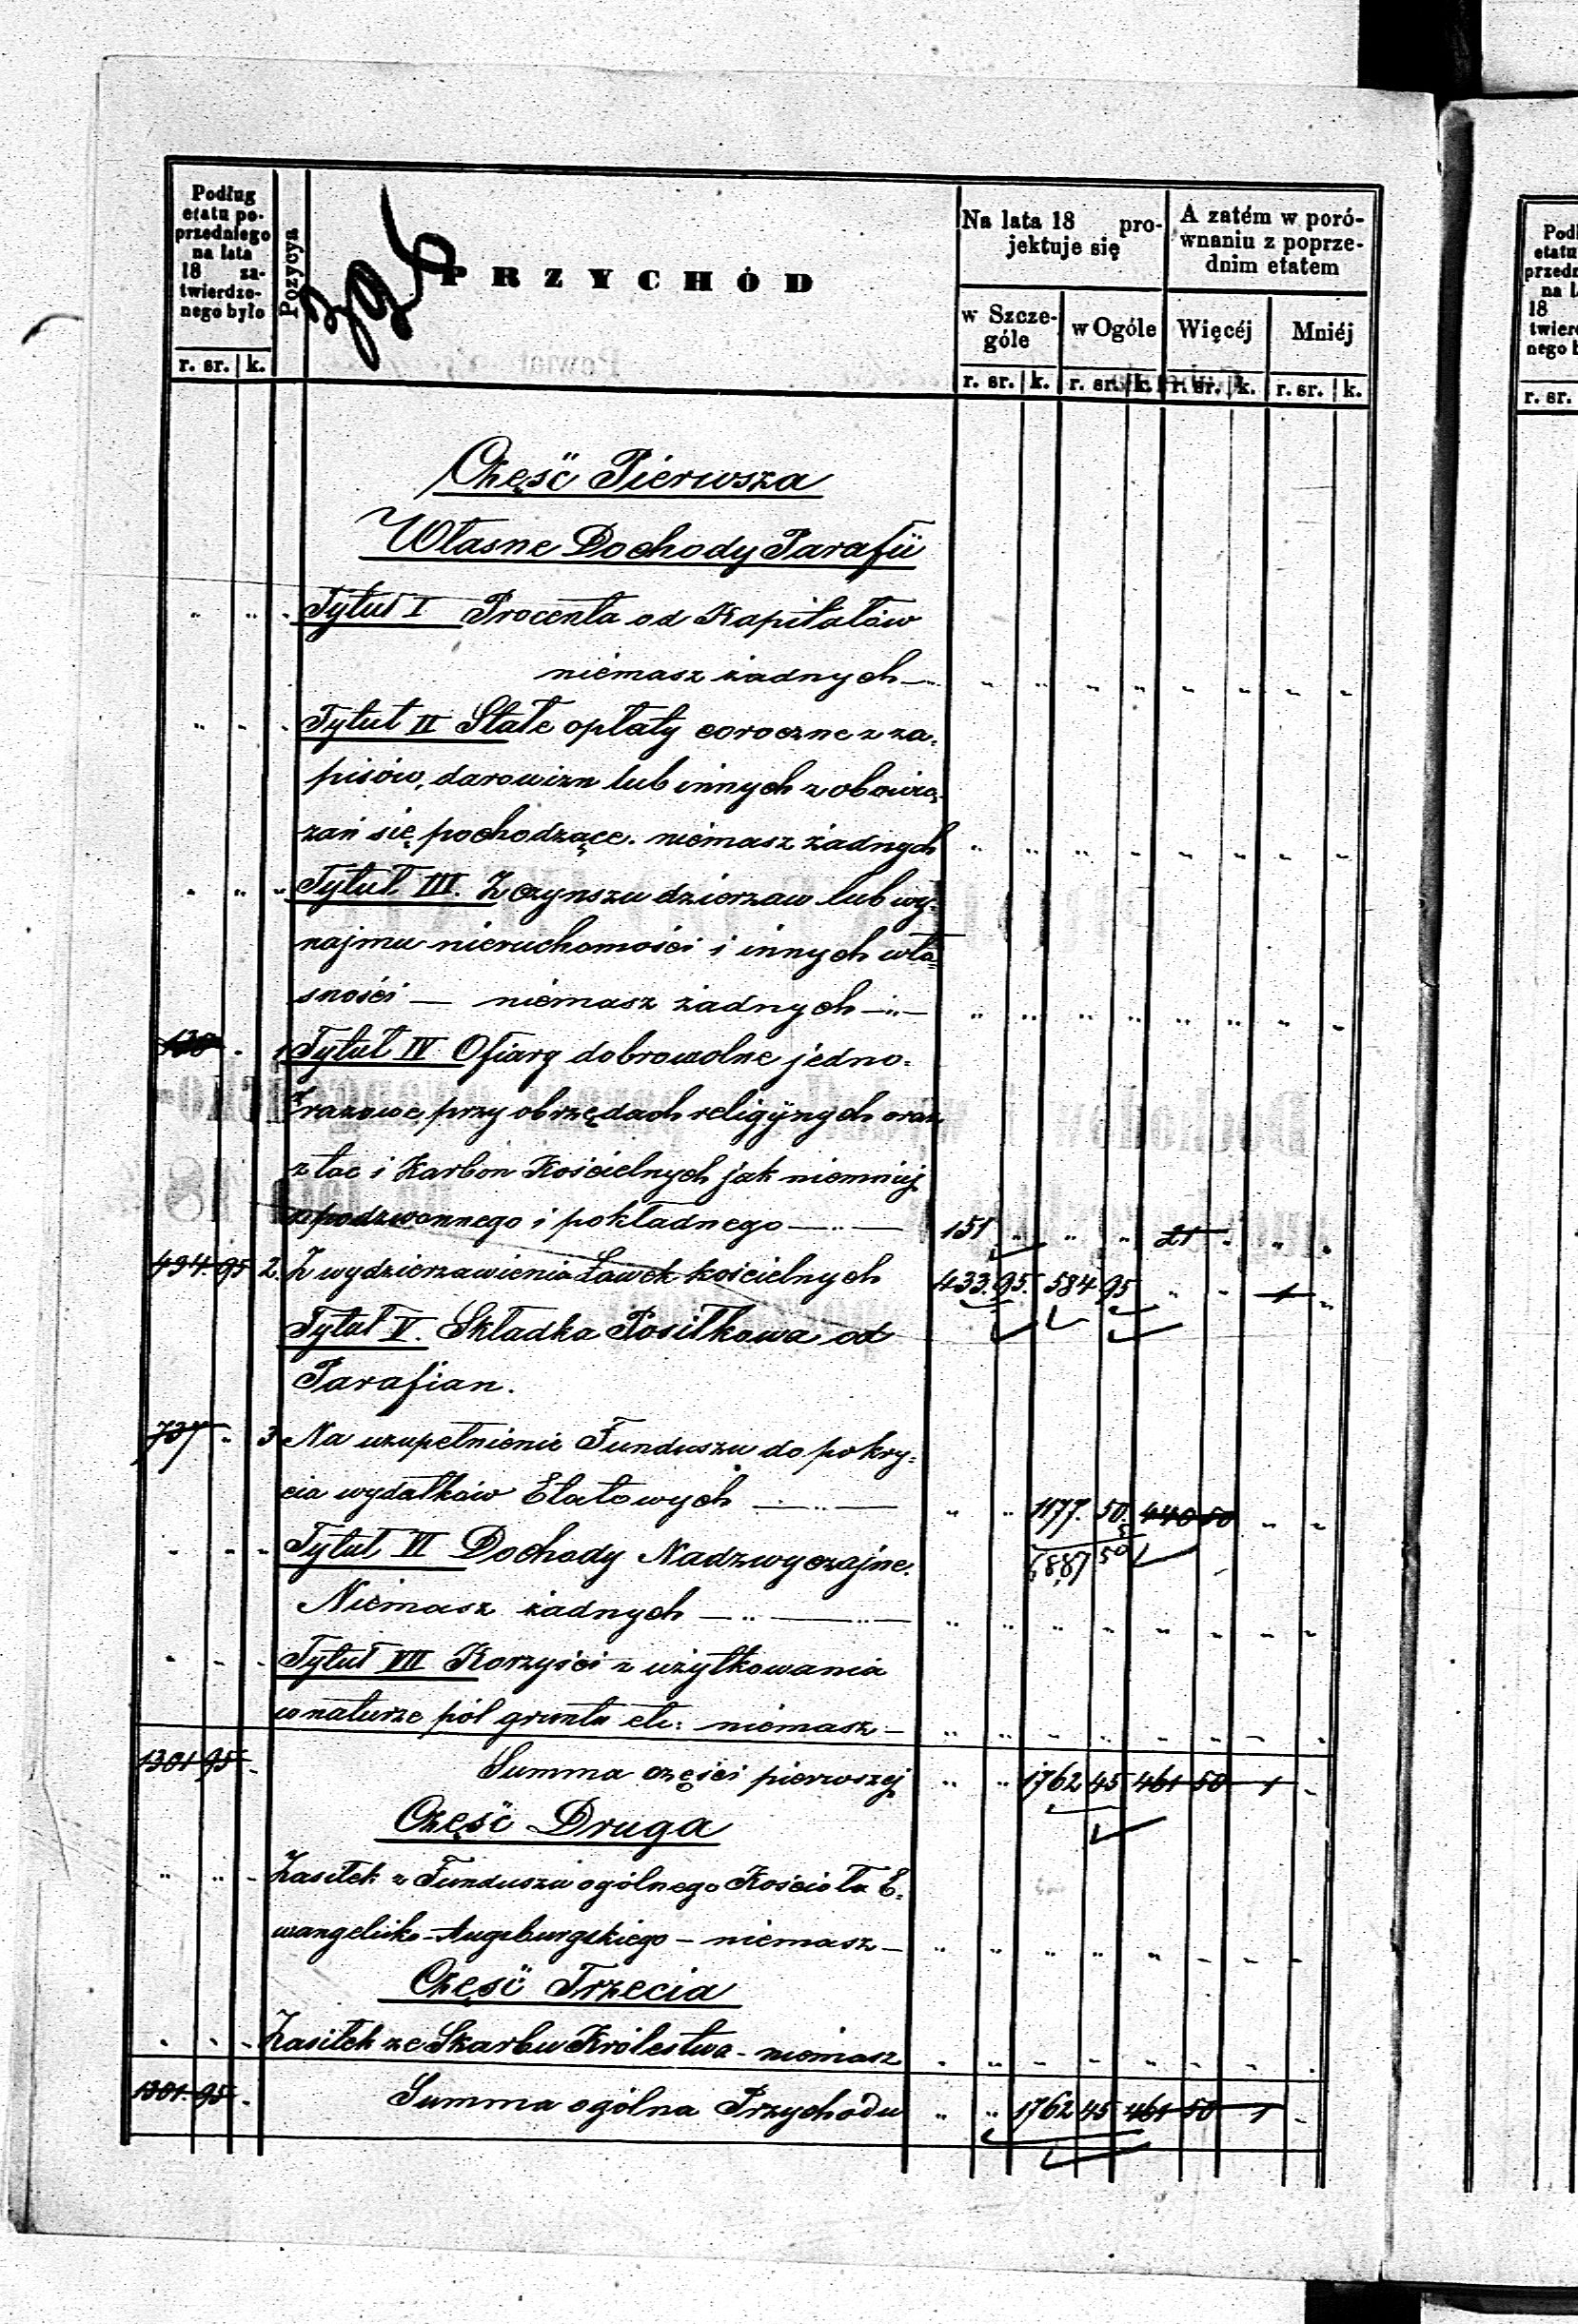 Podług
etatu po-
przedniego
na lata
18 za-
twierdzo-
nego było
r. sr. k.
Pozycya
PRZYCHÓD
Na lata 18 pro-
jektuje się
w Szcze-
góle
w Ogóle
r. sr. k. r. sr. k.
A zatém w poró-
wnaniu z poprze-
dnim etatem
Więcéj Mniéj
r. sr. k. r. sr. k.
Część Pierwsza
Własne Dochody Parafii
Tytuł I Procenta od Kapitałów
niemasz żadnych
Tytuł II Stałe opłaty coroczne z za=
pisów, darowizn lub innych zobowią=
zań się pochodzące. niemasz żadnych
Tytuł III. Z czynszu dzierzaw lub wy=
najmu nieruchomości i innych wła=
sności — niemasz żadnych
130 1 Tytuł IV Ofiary dobrowolne jedno=
razowe, przy obrzędach religijnych oraz
z tac i Karbon Kościelnych jak niemniej
podzwonnego i pokładnego 151 21
434. 95 2. Z wydzierzawienia Ławek kościelnych 433. 95. 584 95 1
Tytuł V. Składka Posiłkowa od
Parafian.
737 3 Na uzupełnienie Funduszu do pokry=
cia wydatków Etatowych 1177. 50. 440 50
Tytuł VI Dochody Nadzwyczajne.
Niemasz żadnych
Tytuł VII Korzyści z użytkowania
w naturze pól gruntu etc: niemasz
1301 95 Summa części pierwszej 1762 45 461 50 1
Część Druga
Zasiłek z Funduszu ogólnego Kościoła E=
wangelicko-Augsburgskiego – niemasz
Część Trzecia
Zasiłek ze Skarbu Królestwa - niemasz
1301. 95 Summa ogólna Przychodu 1762 45 461 50 1
Podł
etatu
przedn
na l
18
twierd
nego b
r. sr.